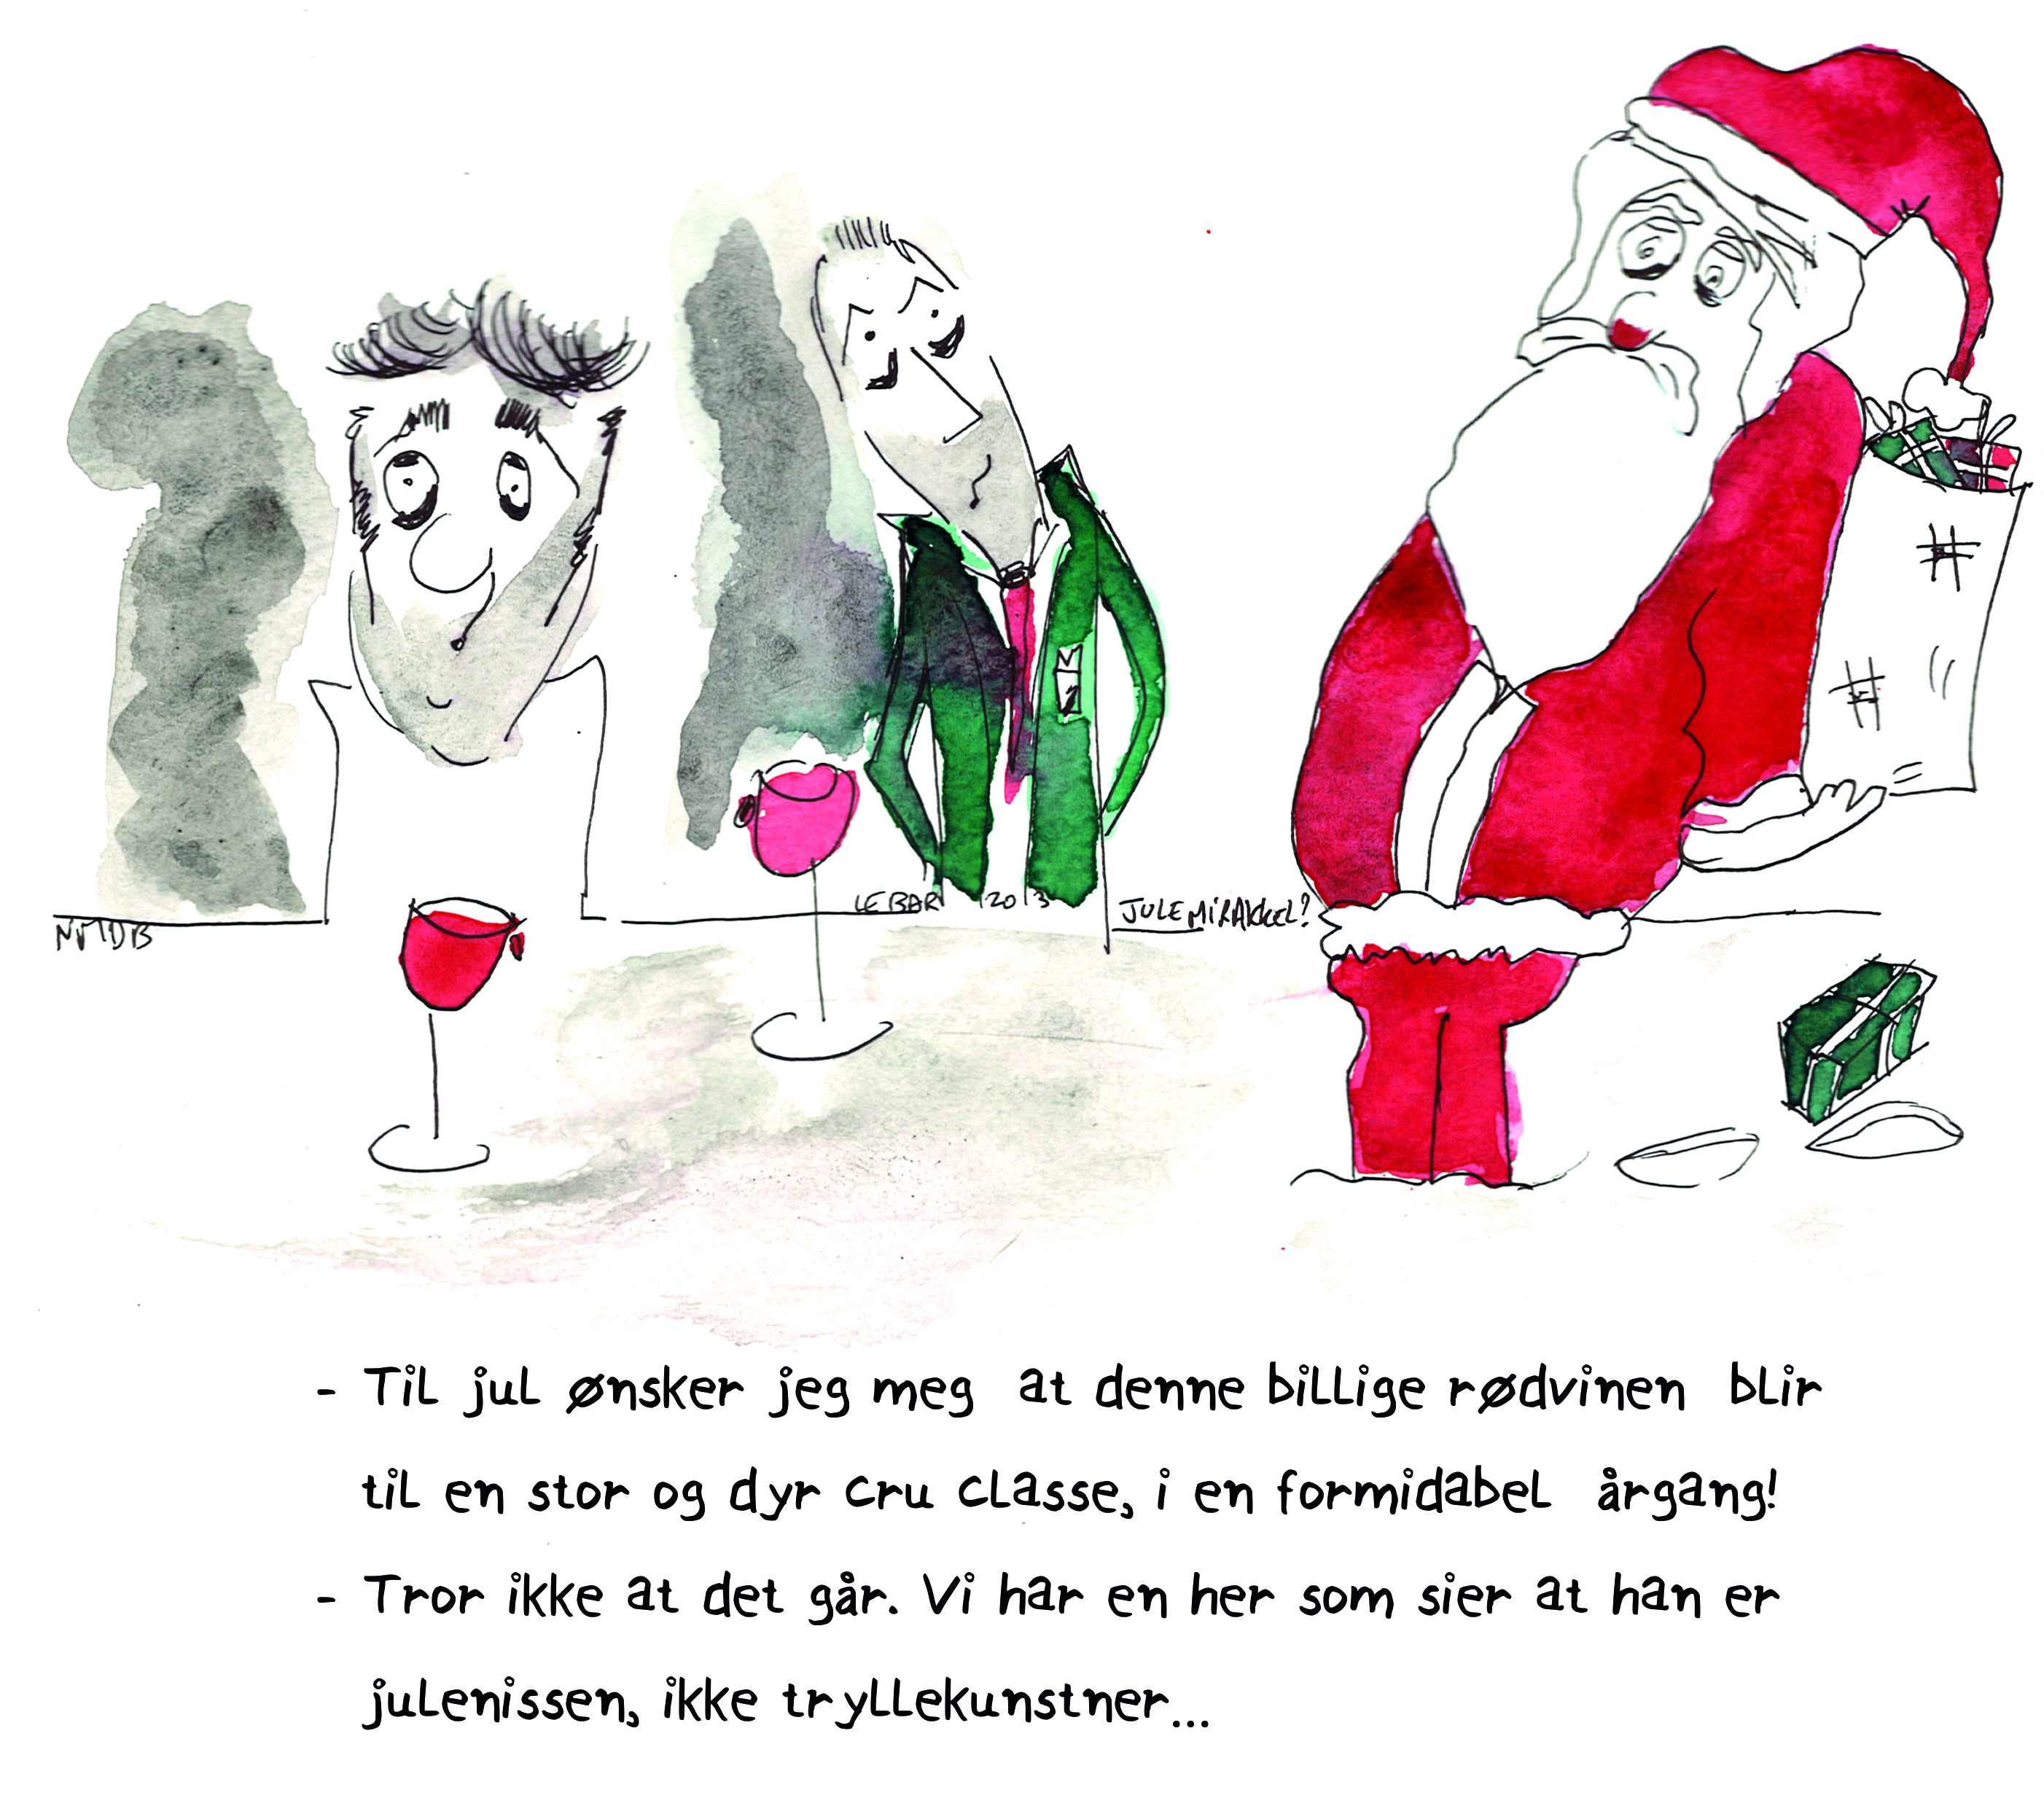 LE BAR 2013
JULEMIRAKKEL?
- Til jul ønsker jeg meg at denne billige rødvinen blir
til en stor og dyr cru classe, i en formidabel årgang!
- Tror ikke at det går. Vi har en her som sier at han er
julenissen, ikke tryllekunstner...